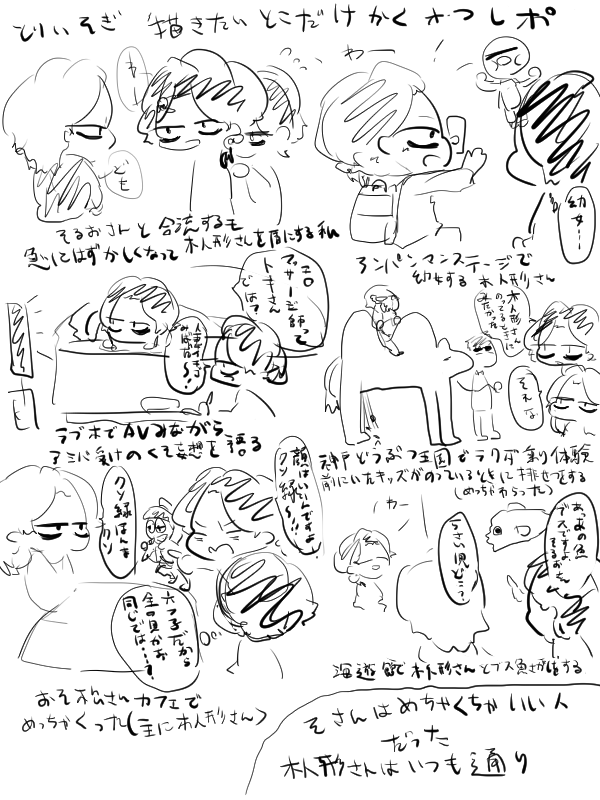 とりいそぎ 描きたいとこだけかくオフレポ
わー
ども
そるおさんと合流するも
急にはずかしくなって木人形さんを盾にする私
わー
幼女ー
アンパンマンステージで
幼女する木人形さん
エロ
マッサージ師って
トキさん
では?
ラブホでAVみながら
アミバ受けのくそ妄想を語る
木人形さん
のってるときに
それな
神戸どうぶつ王国でラクダ乗り体験
前にいたキッズがのっているときに排せつをする
(めっちゃわらった)
クソ緑はんま
クソ
顔はいいんですよ
クソ緑ー!!
六つ子だから
全員顔が
同じでは…?
おそ松さんカフェで
めっちゃくった(主に木人形さん)
わー
うさい児どこ?
あっあの魚
ブスですよ
そるおさん
海遊館で木人形さんとブス魚さがしをする
そさんはめちゃくちゃいい人
だった
木人形さんはいつも通り